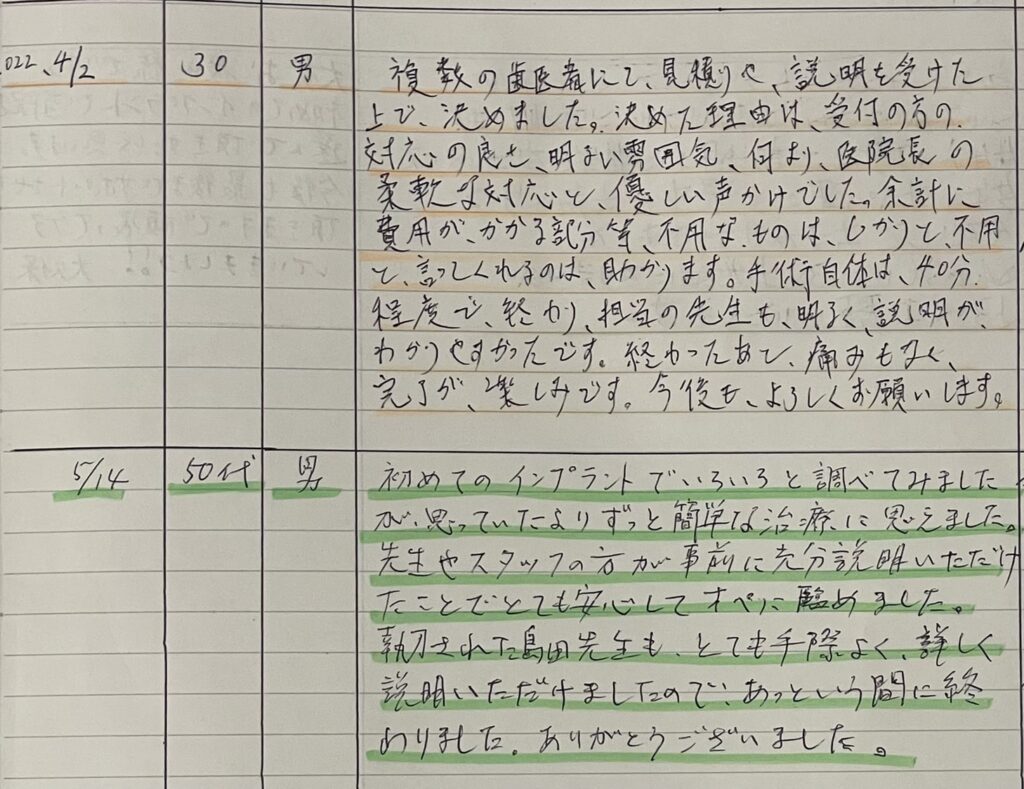 022、4/2 30 男 複数の歯医者にて、見積りや、説明を受けた
上で、決めました。決めた理由は、受付の方の、
対応の良さ、明るい雰囲気、何より、医院長の
柔軟な対応と、優しい声かけでした。余計に
費用が、かかる部分等、不用な、ものは、しかりと、不用
と、言ってくれるのは、助かります。手術自体は、40分
程度で、終わり、担当の先生も、明るく、説明が、
わかりやすかったです。終わったあと、痛みもなく、
完了が、楽しみです。今後も、よろしくお願いします。
5/14 50代 男 初めてのインプラントでいろいろと調べてみました
が、思っていたよりずっと簡単な治療に思えました。
先生やスタッフの方が事前に充分説明いただけ
たことでとても安心してオペに臨めました。
執刀された島田先生も、とても手際よく、詳しく
説明いただけましたので、あっという間に終
わりました。ありがとうございました。